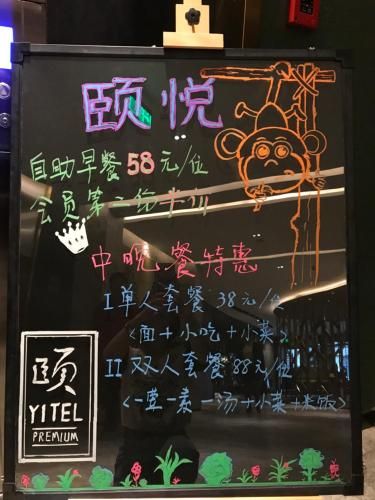 颐悦
自助早餐58元/位
会员第二份半价
中晚餐特惠
I 单人套餐 38元/位
<面+小吃+小菜>
II 双人套餐 88元/位
<一荤一素一汤+小菜+米饭>
颐
YITEL
PREMIUM